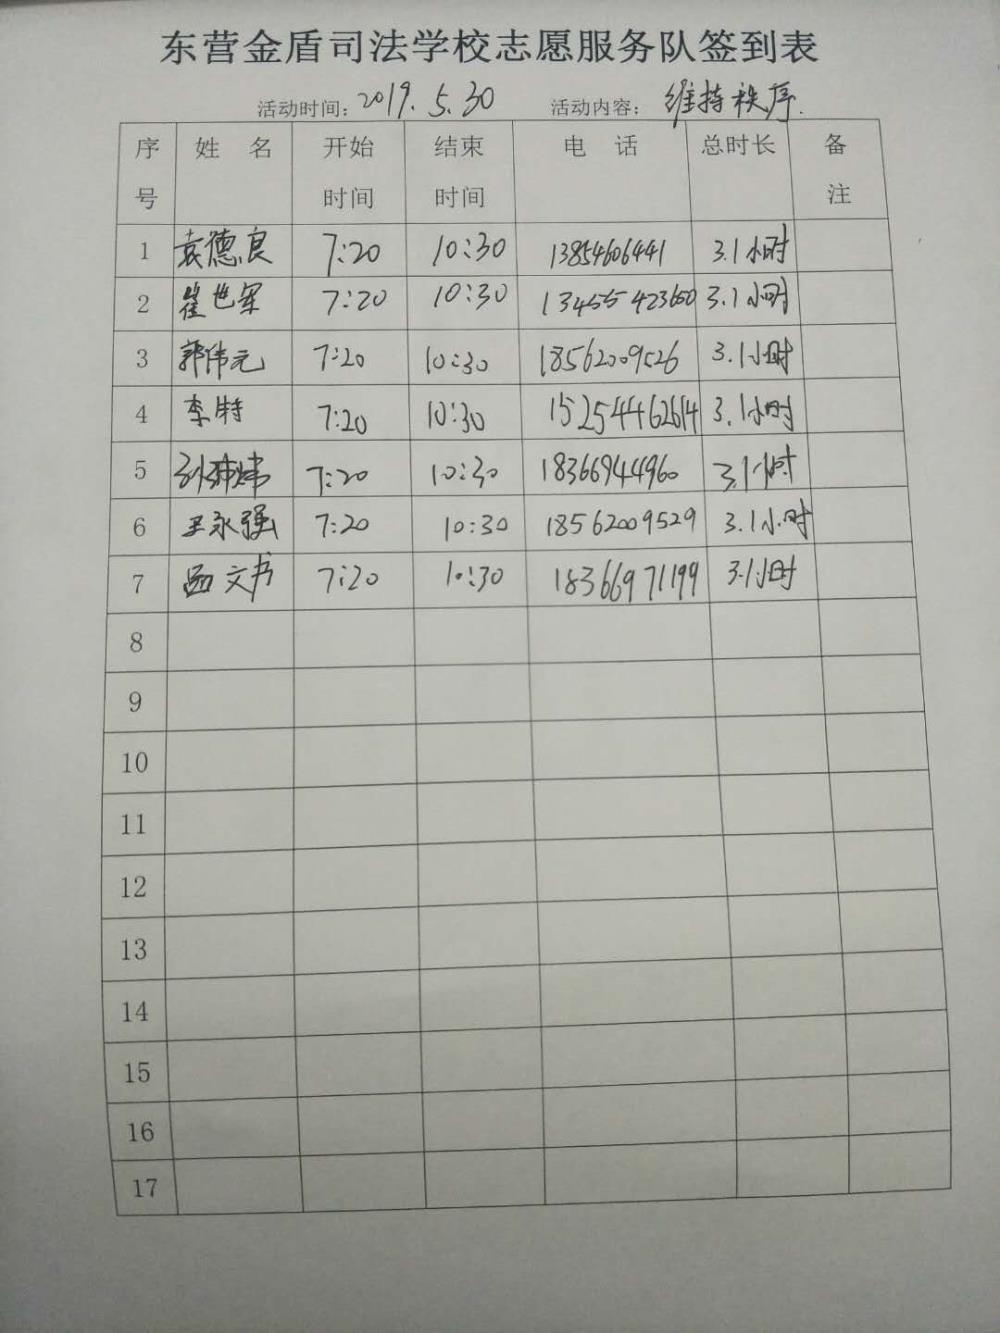 东营金盾司法学校志愿服务队签到表
活动时间：2019.5.30 活动内容：维持秩序.
序号 姓 名 开始时间 结束时间 电 话 总时长 备注
1 袁德良 7:20 10:30 13854606441 3.1小时
2 崔世军 7:20 10:30 13455423650 3.1小时
3 郭伟元 7:20 10:30 18562009526 3.1小时
4 李特 7:20 10:30 15254462614 3.1小时
5 7:20 10:30 18366944960 3.1小时
6 王永强 7:20 10:30 18562009529 3.1小时
7 文书 7:20 10:30 18366971199 3.1小时
8
9
10
11
12
13
14
15
16
17